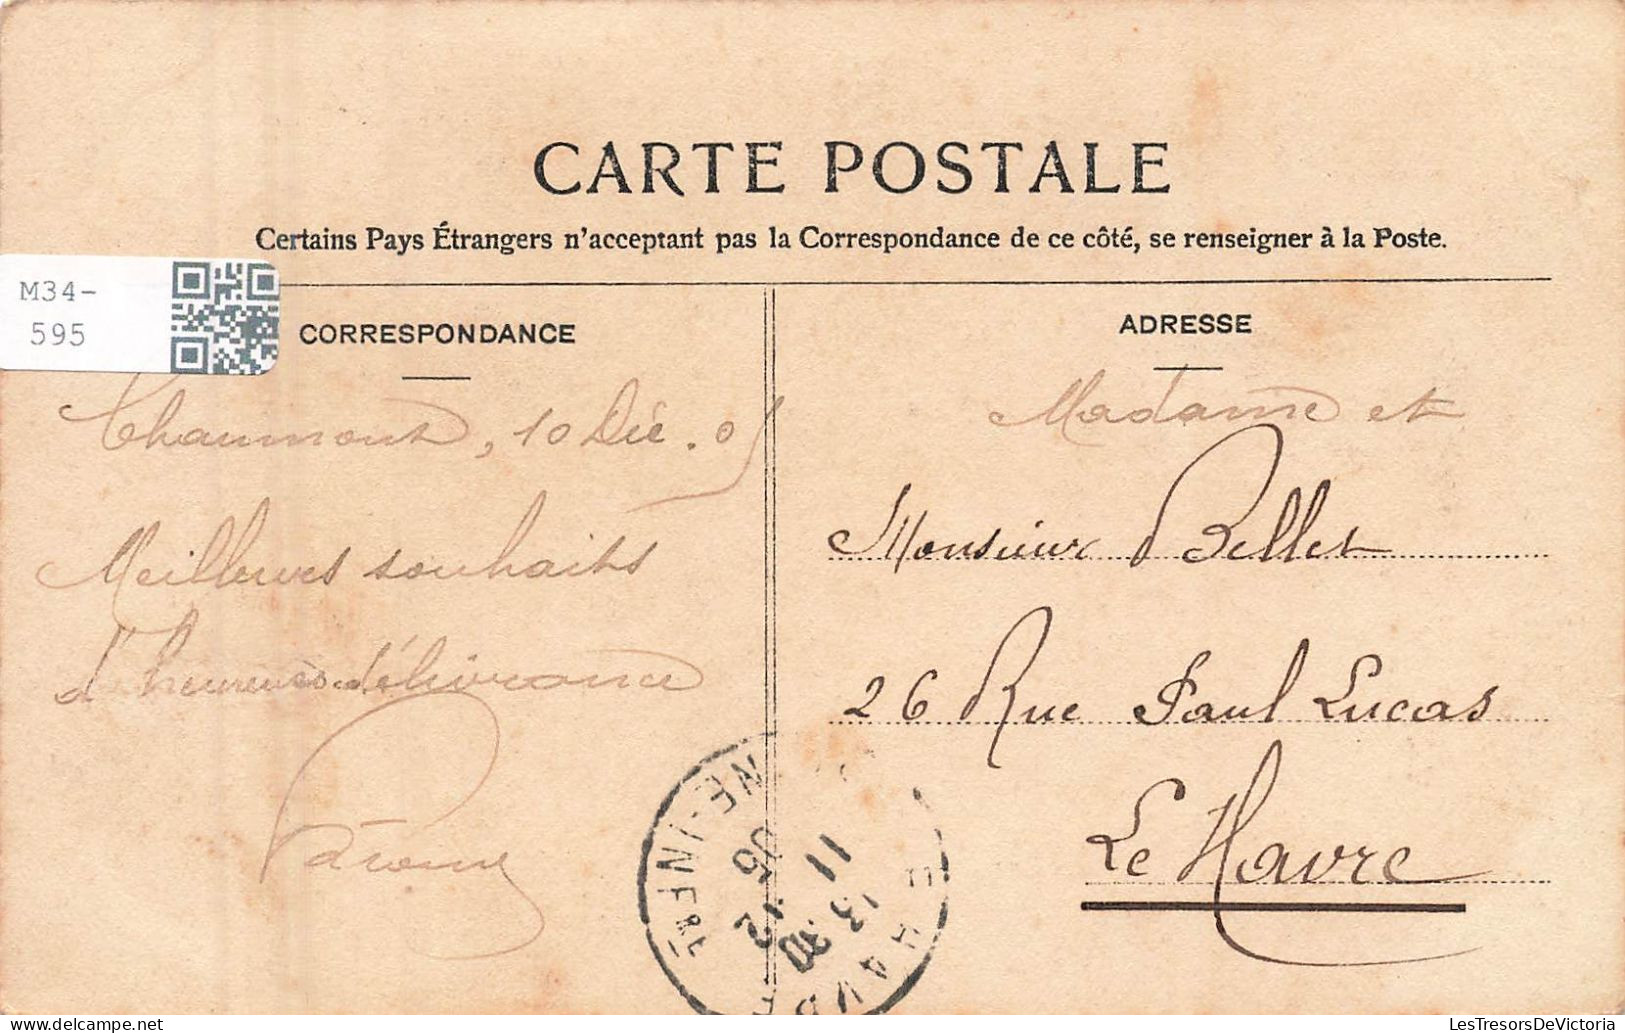 CARTE POSTALE
Certains Pays Étrangers n'acceptant pas la Correspondance de ce côté, se renseigner à la Poste.
M34-
595
CORRESPONDANCE
Chaumont, 10 Déc. 05
Meilleures souhaits
d'heureuse délivrance
ADRESSE
Madame et
Monsieur Bellet
26 Rue Paul Lucas
Le Havre
LE HAVRE
NE-INFRE
13 30
11
12
05
LesTresorsDeVictoria
www.delcampe.net